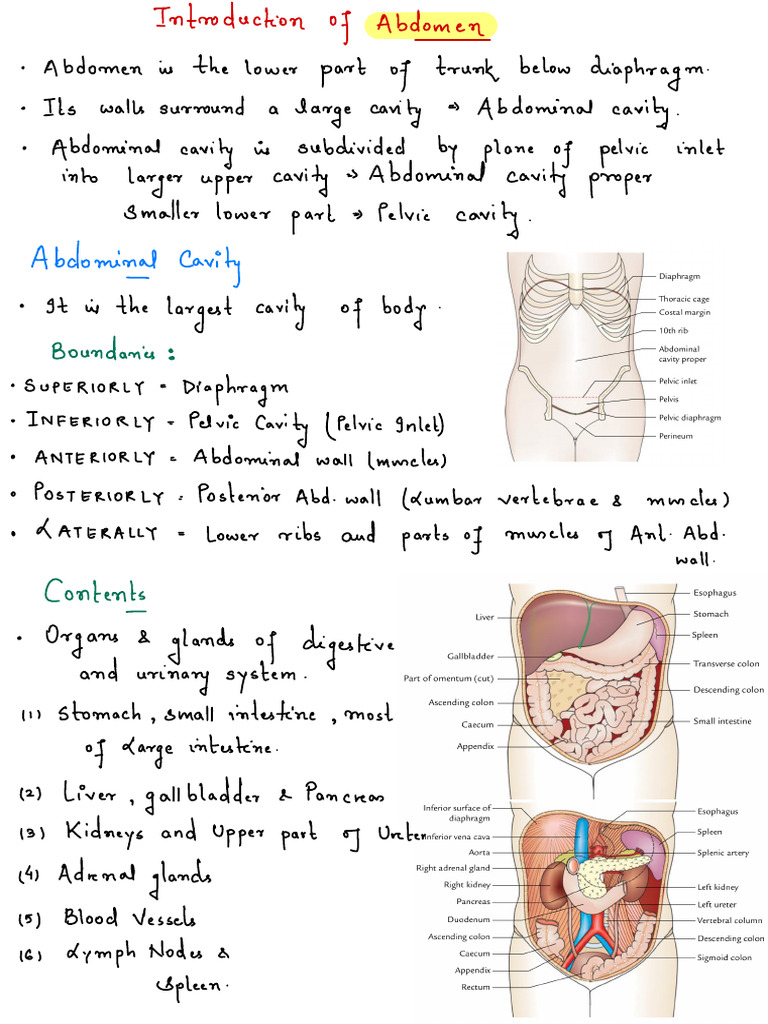 Introduction of Abdomen
• Abdomen is the lower part of trunk below diaphragm.
• Its walls surround a large cavity → Abdominal cavity.
• Abdominal cavity is subdivided by plane of pelvic inlet
into larger upper cavity → Abdominal cavity proper
smaller lower part → Pelvic cavity.
Abdominal Cavity
• It is the largest cavity of body.
Boundaries:
• SUPERIORLY = Diaphragm
• INFERIORLY = Pelvic Cavity (Pelvic Inlet)
• ANTERIORLY = Abdominal wall (muscles)
• POSTERIORLY = Posterior Abd. wall (Lumbar vertebrae & muscles)
• LATERALLY = Lower ribs and parts of muscles of Ant. Abd.
wall.
Diaphragm
Thoracic cage
Costal margin
10th rib
Abdominal
cavity proper
Pelvic inlet
Pelvis
Pelvic diaphragm
Perineum
Contents
• Organs & glands of digestive
and urinary system.
(1) Stomach, small intestine, most
of Large intestine.
(2) Liver, gallbladder & Pancreas
(3) Kidneys and Upper part of Ureter
(4) Adrenal glands
(5) Blood Vessels
(6) Lymph Nodes &
Spleen.
Liver
Gallbladder
Part of omentum (cut)
Ascending colon
Caecum
Appendix
Esophagus
Stomach
Spleen
Transverse colon
Descending colon
Small intestine
Inferior surface of
diaphragm
Inferior vena cava
Aorta
Right adrenal gland
Right kidney
Pancreas
Duodenum
Ascending colon
Caecum
Appendix
Rectum
Esophagus
Spleen
Splenic artery
Left kidney
Left ureter
Vertebral column
Descending colon
Sigmoid colon